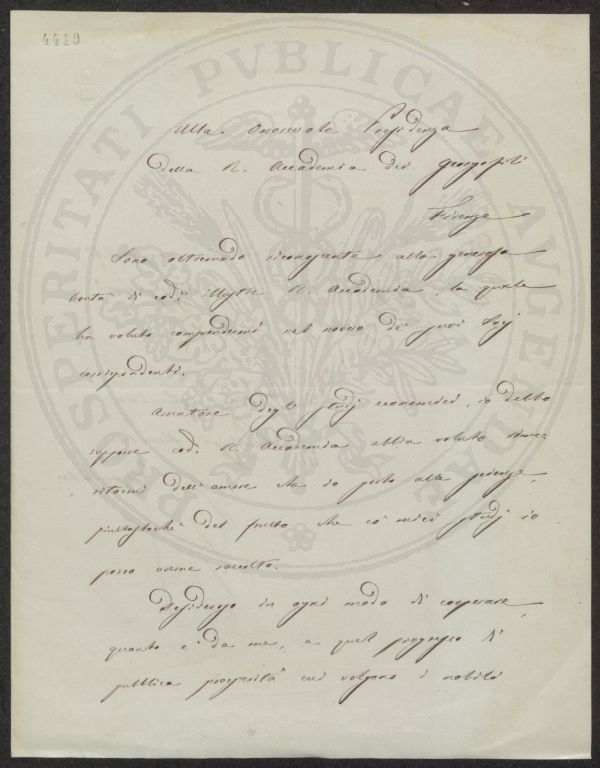 4419
PROSPERITATI PVBLICAE AVGENDAE
Alla Onorevole Presidenza
della R. Accademia dei Georgofili
Firenze
Sono oltremodo riconoscente alla generosa
bontà di cod.a illustre R. Accademia, la quale
ha voluto comprendermi nel novero de' suoi Socj
corrispondenti.
Amatore degli studj economici, io debbo
supporre cod.a R. Accademia abbia voluto rime-
ritarmi dell'amore che io porto alla scienza,
piuttostochè del frutto che co' miei studj io
posso averne raccolto.
Desideroso in ogni modo di cooperare,
quanto è da me, a quel progresso di
pubblica prosperità cui volgono i nobili